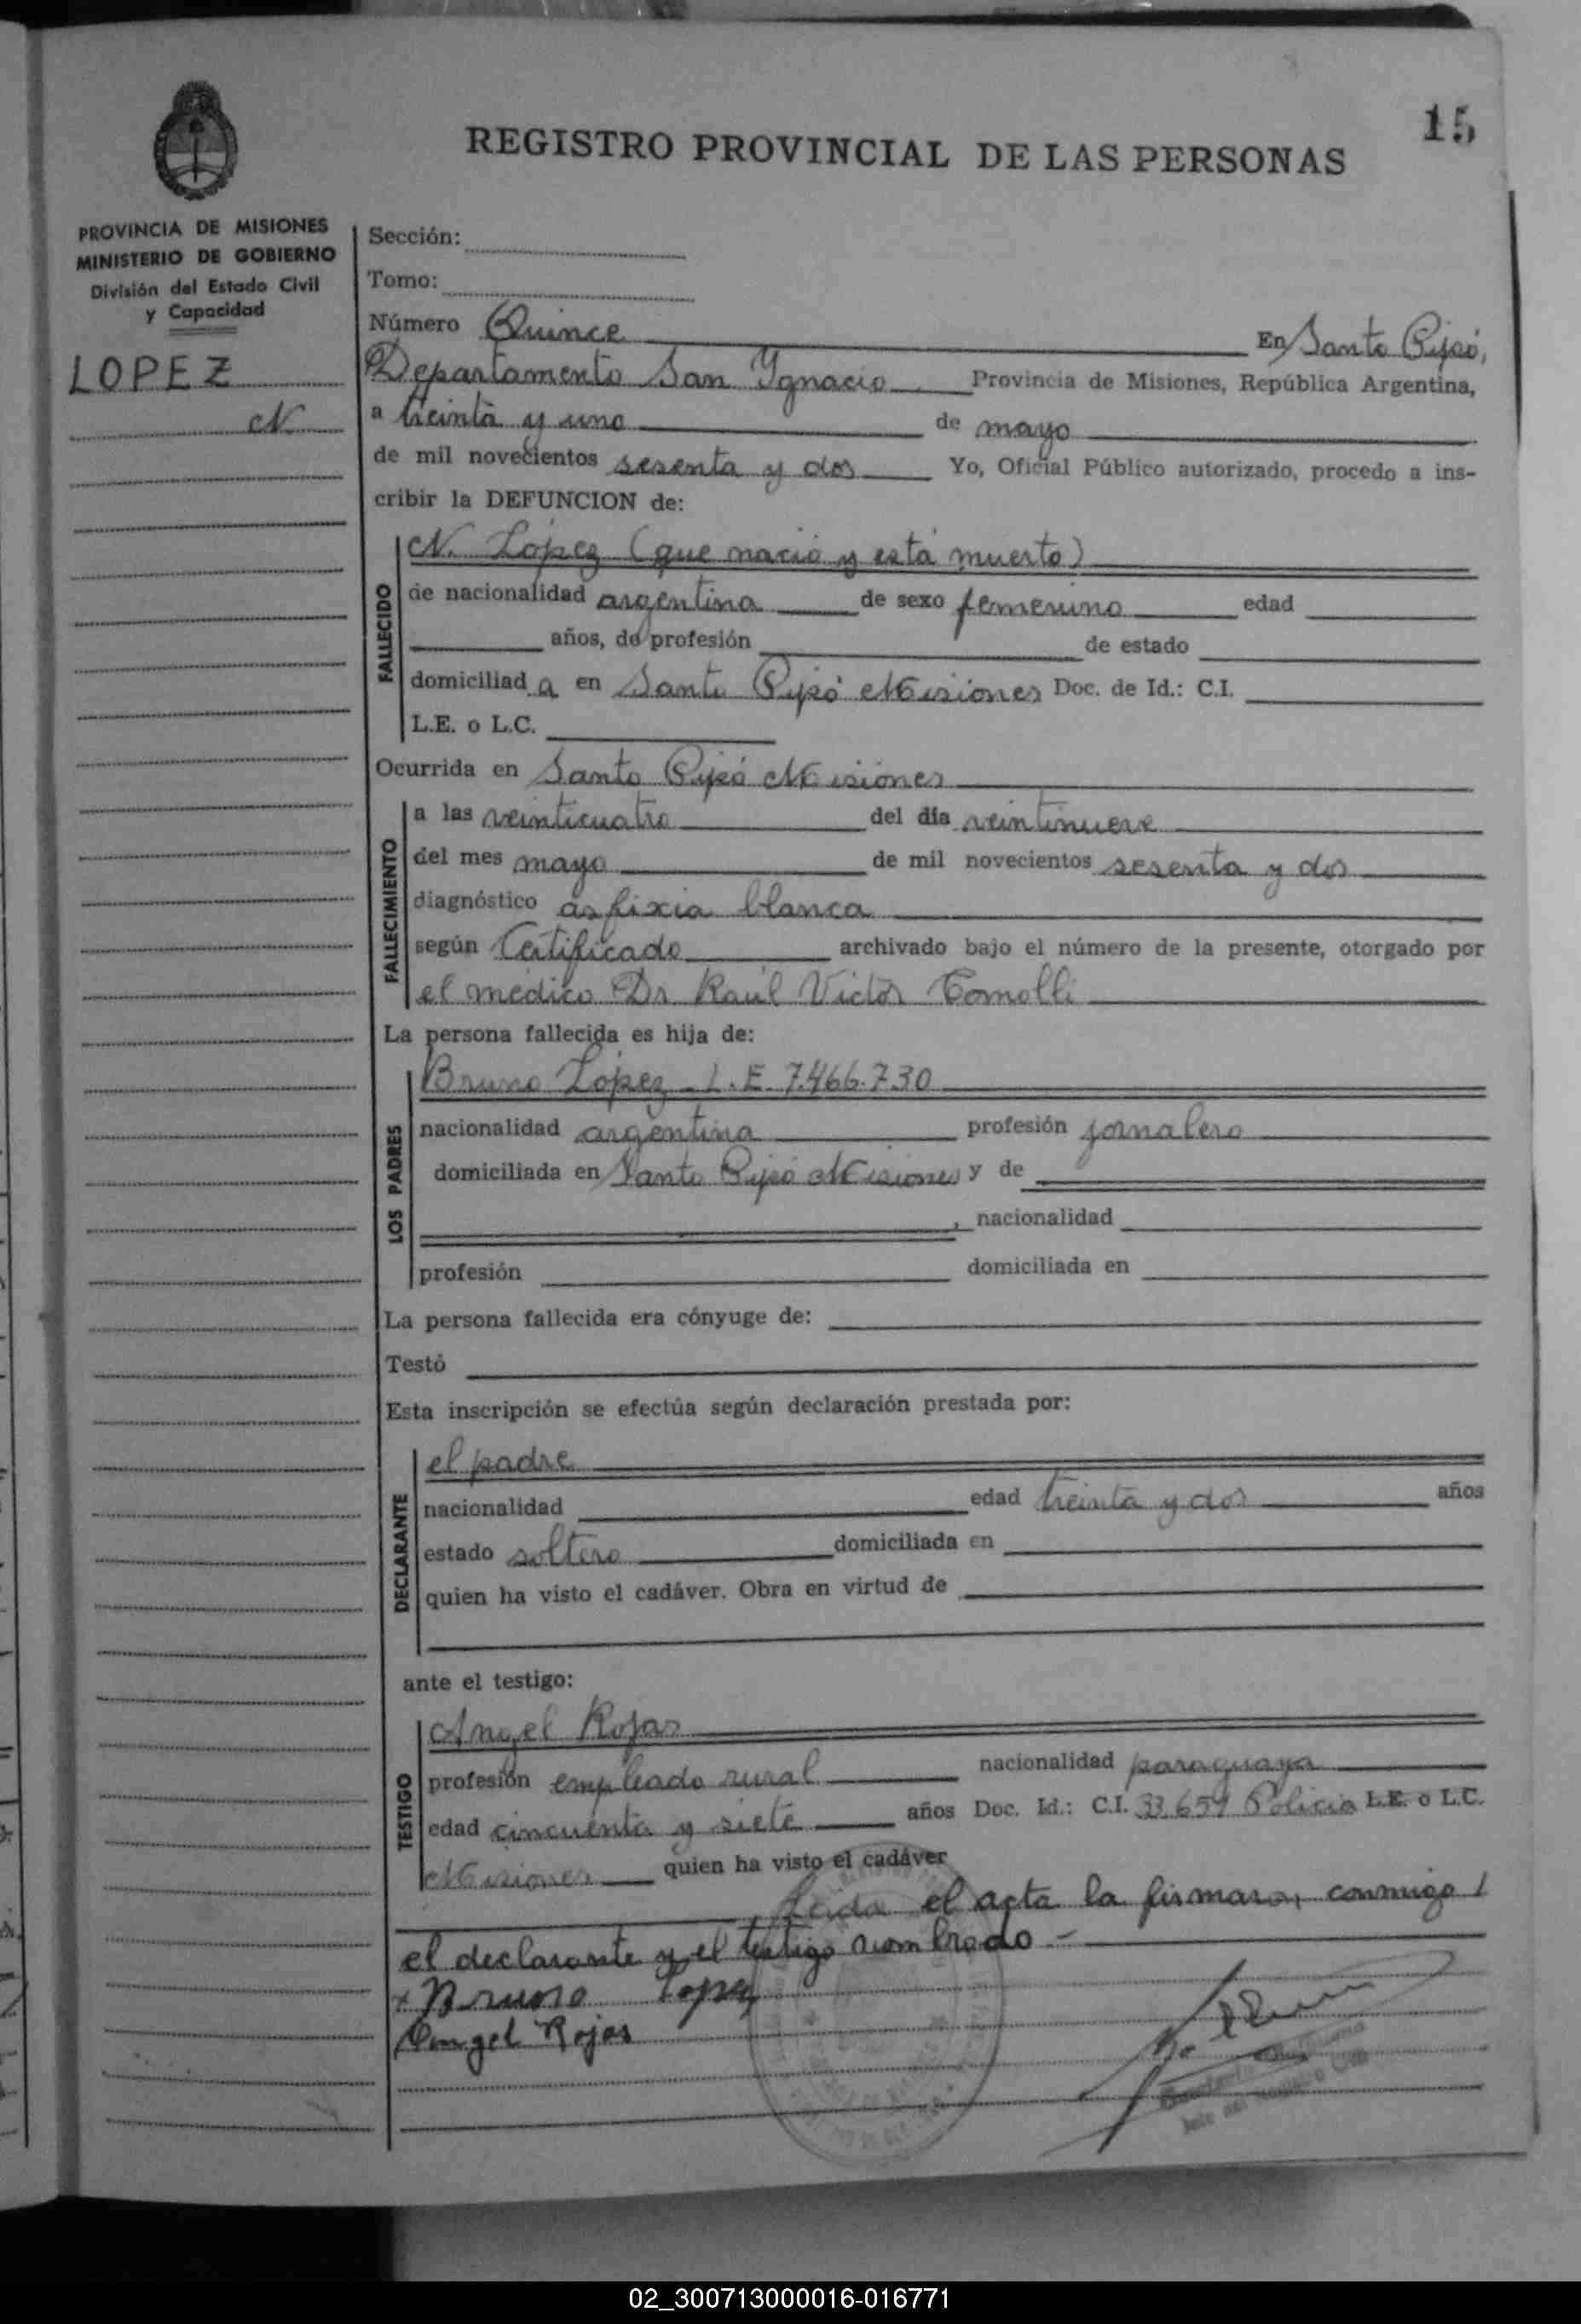 15
REGISTRO PROVINCIAL DE LAS PERSONAS
PROVINCIA DE MISIONES
MINISTERIO DE GOBIERNO
División del Estado Civil
y Capacidad
LOPEZ
N.
Sección:
Tomo:
Número Quince En Santo Pipó,
Departamento San Ygnacio Provincia de Misiones, República Argentina,
a treinta y uno de mayo
de mil novecientos sesenta y dos Yo, Oficial Público autorizado, procedo a ins-
cribir la DEFUNCION de:
FALLECIDO
N. López (que nació y está muerto)
de nacionalidad argentina de sexo femenino edad
años, de profesión de estado
domiciliad a en Santo Pipó Misiones Doc. de Id.: C.I.
L.E. o L.C.
Ocurrida en Santo Pipó Misiones
FALLECIMIENTO
a las veinticuatro del día veintinueve
del mes mayo de mil novecientos sesenta y dos
diagnóstico asfixia blanca
según Certificado archivado bajo el número de la presente, otorgado por
el médico Dr Raúl Victor Comolli
La persona fallecida es hija de:
LOS PADRES
Bruno López - L.E. 7.466.730
nacionalidad argentina profesión jornalero
domiciliada en Santo Pipó Misiones y de
, nacionalidad
profesión domiciliada en
La persona fallecida era cónyuge de:
Testó
Esta inscripción se efectúa según declaración prestada por:
DECLARANTE
el padre
nacionalidad edad treinta y dos años
estado soltero domiciliada en
quien ha visto el cadáver. Obra en virtud de
ante el testigo:
TESTIGO
Angel Rojas
profesión empleado rural nacionalidad paraguaya
edad cincuenta y siete años Doc. Id.: C.I. 33.659 Policia L.E. o L.C.
Misiones quien ha visto el cadáver
Leida el acta la firmaron conmigo
el declarante y el testigo nombrado -
x Bruno Lopez
Angel Rojas
02_300713000016-016771